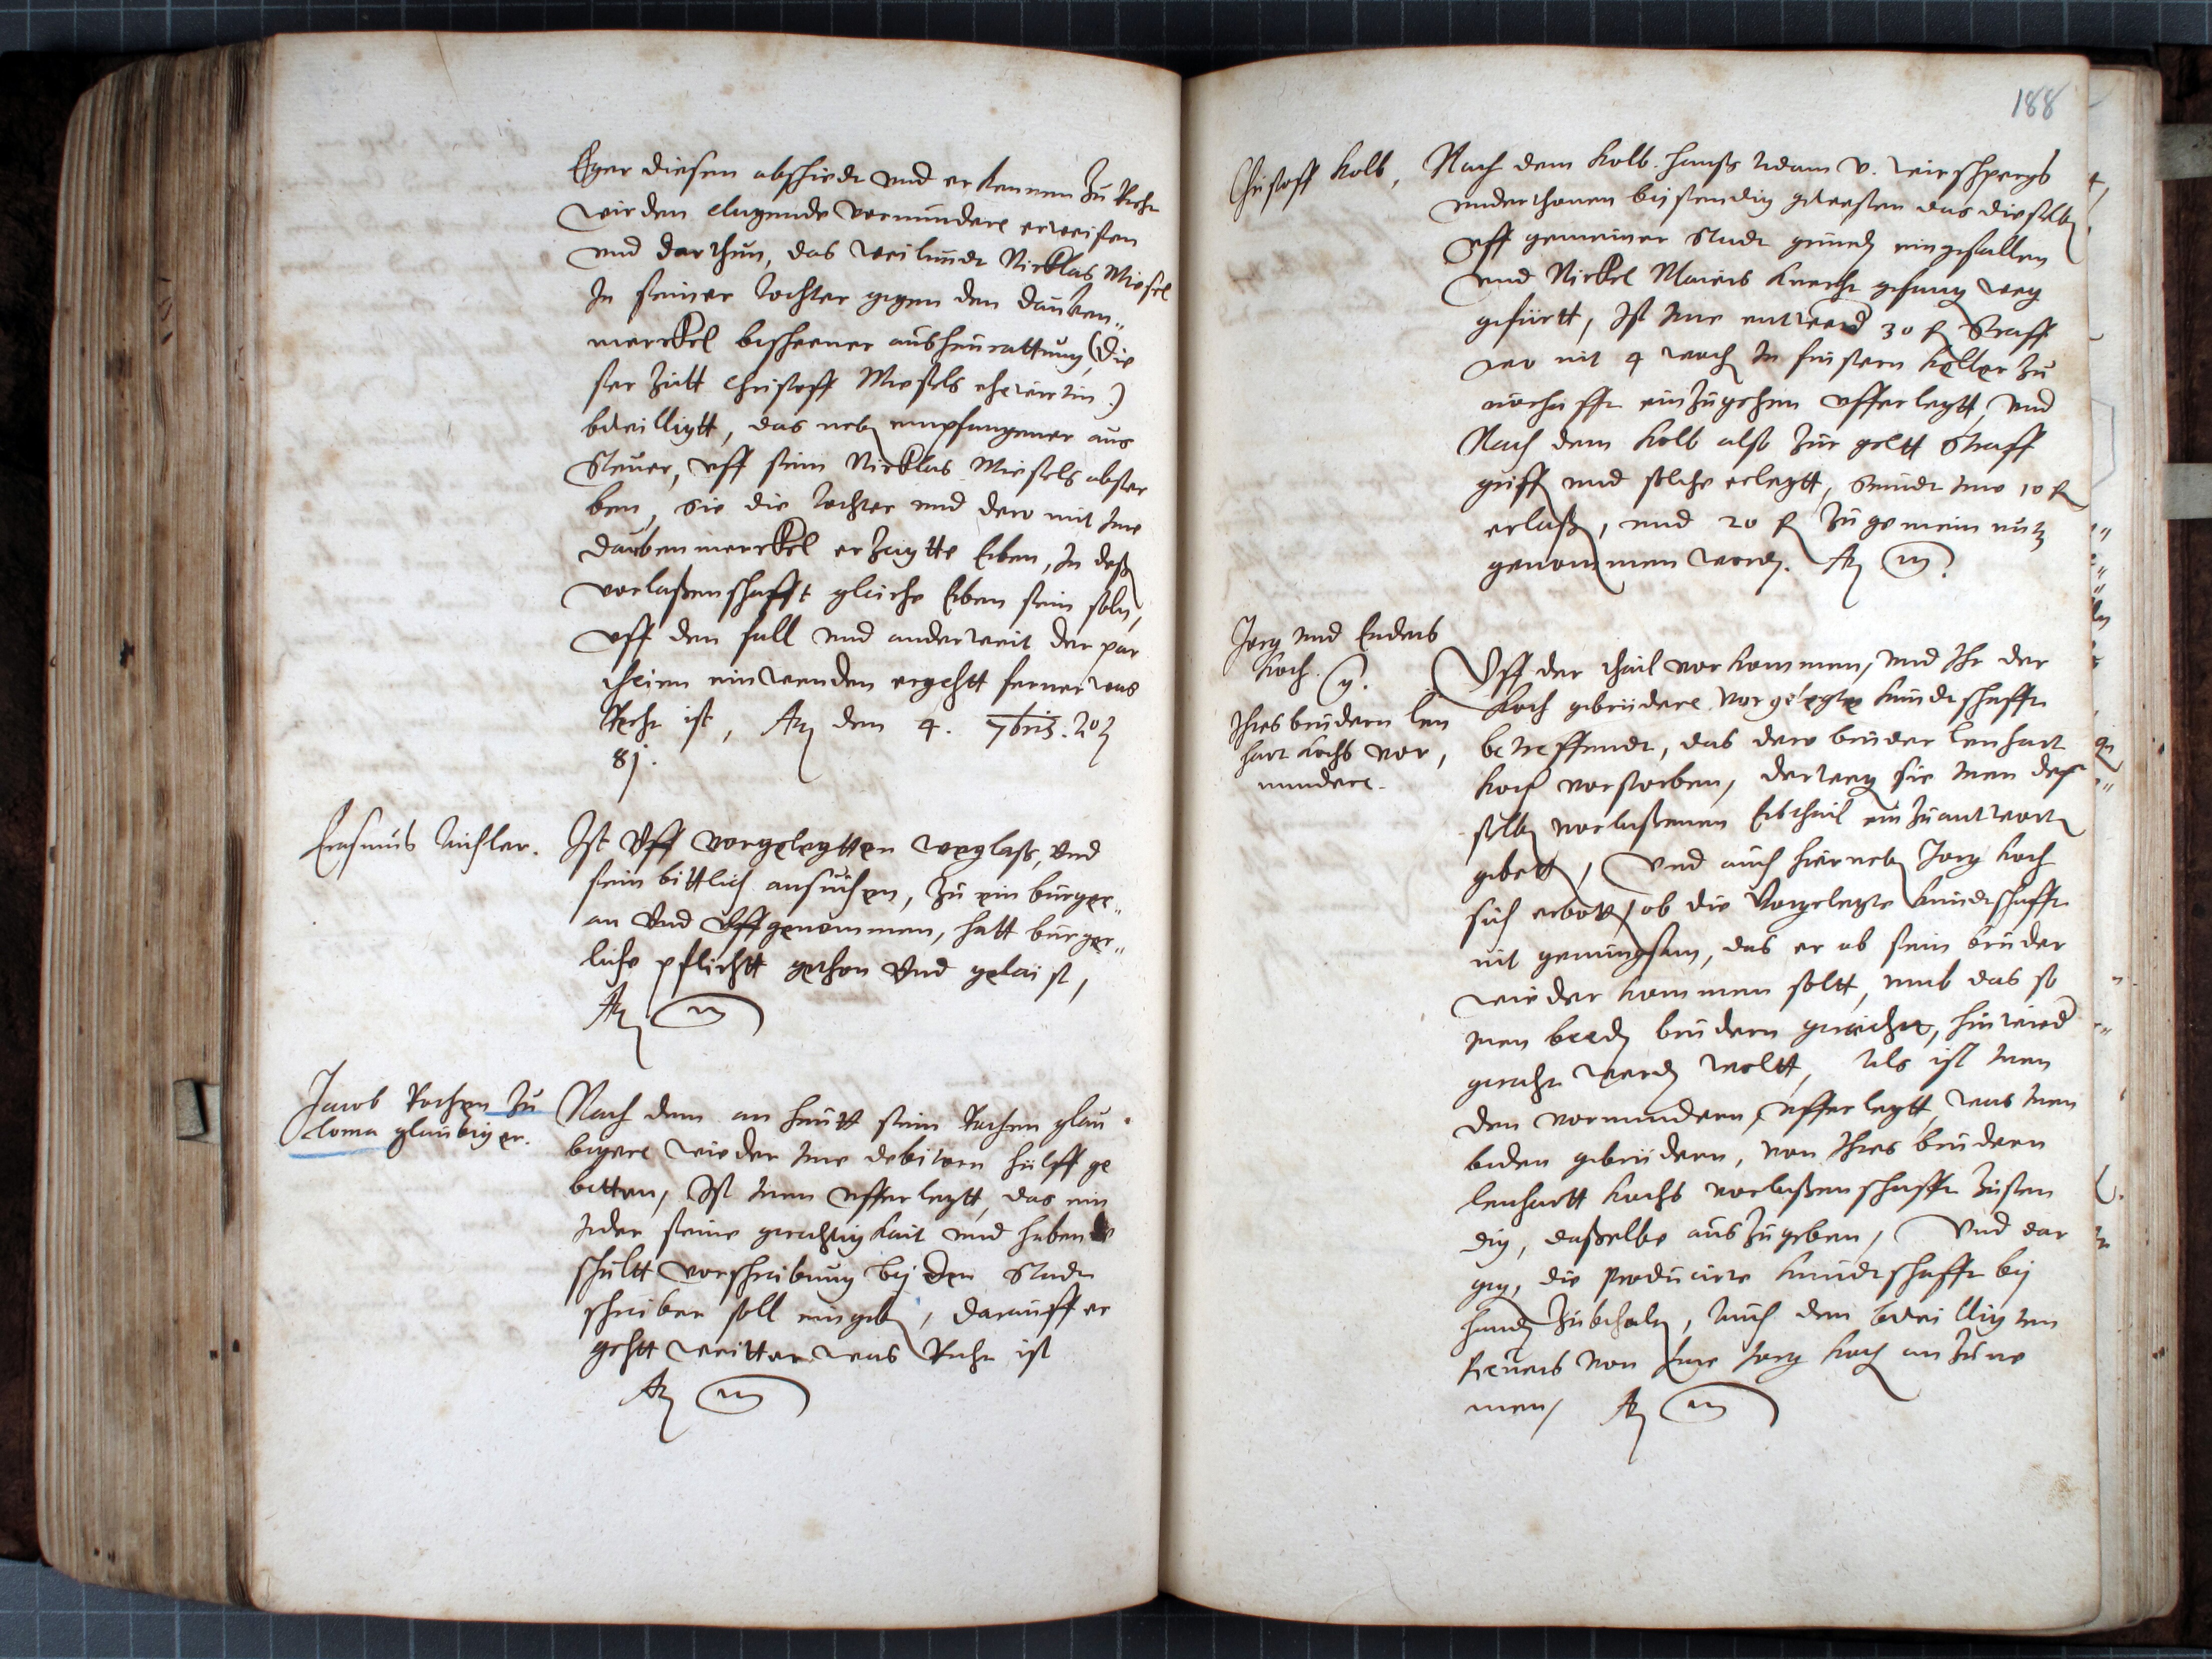 Eger diesen abschiedt vnd erkennen zu Recht
wirden clagende vormundere erweisen
vnd darthun, das weilundt Nicklas Miesel
In seiner tochter gegen den dauben„
merckel bescheener ausheurattung, (die
ser Zeitt Christoff Miesels ehewirtin.)
bewilligtt, das neben empfangener aus
Steuer, vff sein Nicklas Miesels abster
ben, Sie die tochter vnd dero mit Ime
daubenmerckel erzeugtte Erben, In deßen
vorlaßenschafft gleiche Erben sein soln,
vff den fall vnd anderweit der par
theien einwenden ergehtt ferner was
Recht ist, den 4. 7bris.
81.
Erasmus Aichler.
Ist Vff vorgelegtten weglaß, Vnd
sein bittlich ansuchen, zu ein burger„
an Vnd Vffgenommen, hatt burger„
liche pflichtt gethon Vnd gelaist,
Jacob Rachen zu
loma glaubiger.
Nach dem an heutt sein Rachen glau
bigere wieder Ime debitorn hülff ge
betten, Ist Inen vfferlegtt, das ein
Ider seine gerechtigkait vnd habende
schultt vorschreibung bej den Stadt
schreiber soll eingeben, darauff er
gehtt weitter was Recht ist
188
Christoff Kolb,
Nach dem Kolb. Hanß Adam v. wirschpergs
vnderthonen beistendig gewesen das dieselben
vff gemeiner Stadt grundt eingefallen
vnd Nickel Maiers Knecht gefang weg
gefürtt, Ist Ime entweder 30 f Straff
wo nit 4 wochen In finstern keller zu
einzugehen vfferlegtt, vnd
Nach dem Kolb also zur geltt Straff
griff vnd solche erlegtt, Seindt Ime 10 f
erlaßen, vnd 20 f zu gemein nutz
genommen worden.
Jorg vnd Enders
Koch.
Ihres brudern len
hart Kochs vor,
mundere.
Vff der thail vorkommen, vnd Ihr der
Koch gebrüdere vorgelegte kundtschafft
betreffendt, das dero bruder lenhart
Koch vorstorben, derwegen sie Inen des
selben vorlaßenen Erbthail einzuantworten
gebetten, Vnd auch hierneben Jorg Koch
sich erbotten, ob die Vorgelegte Kundtschafft
nit genungsam, das er ob sein bruder
wieder kommen soltt, vmb das so
Inen beeden brudern gereicht, hinwieder
geracht werden woltt, Als ist Inen
den vormundern, vfferlegtt, was Inen
beden gebrüdern, von Ihres brudern
lenhartt Kochs vorlaßenschafft zusten
dig, daßelbe auszugeben, Vnd dar
gegen, die producirte Kundtschafft bej
handen zubehalten, Auch den bewilligten
Reuers von Ime Jorg Koch anzune
men,